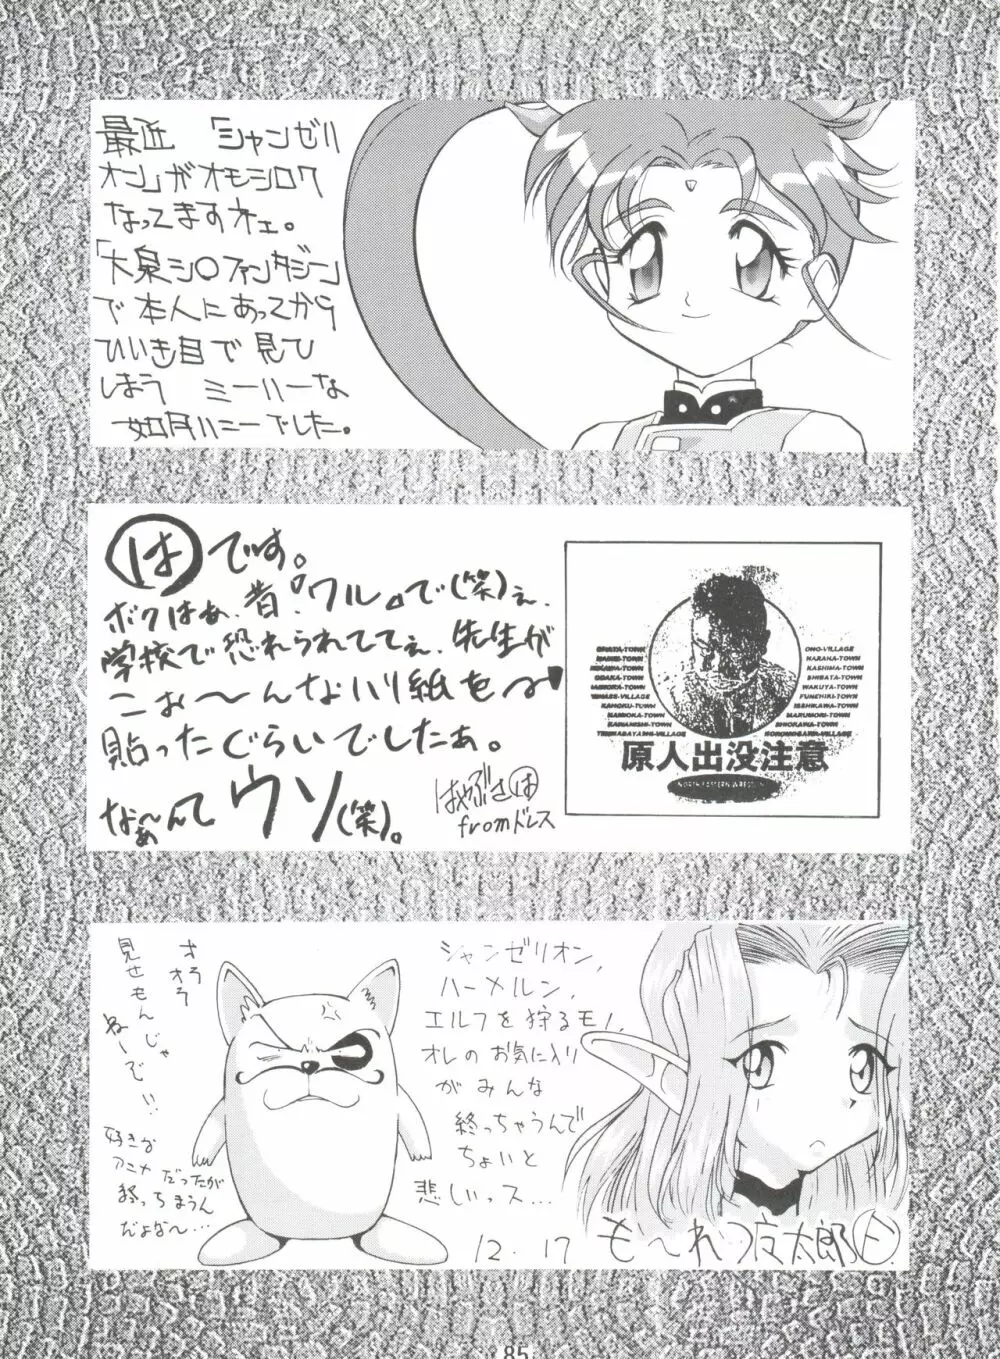 最近 「シャンゼリ
オン」がオモシロク
なってますネェ。
「大泉シ〇ファンタジー」
で本人にあってから
ひいき目で見ひ
しまう ミーハーな
如月ハニーでした。
はです。
ボクはぁ、昔『ワル』で(笑)ぇ、
学校で恐れられててぇ、先生が
こぉ〜んなハリ紙を
貼ったぐらいでしたぁ。
なぁ〜んてウソ(笑)。
はやぶさは
fromドレス
ONO-VILLAGE
NARAHA-TOWN
KASHIMA-TOWN
SHIBATA-TOWN
WAKUYA-TOWN
FUNEHIKI-TOWN
ISHIKAWA-TOWN
MARUMORI-TOWN
SHIOKAWA-TOWN
原人出没注意
オラ
オラ
見せもんじゃ
ねーでい!!
好きな
アニメだったが
終っちまうん
だよな〜…
シャンゼリオン、
ハーメルン、
エルフを狩るモノ、
オレのお気に入り
がみんな
終っちゃうんで
ちょいと
悲しいっス…
12.17
も〜れつ夜太郎
85